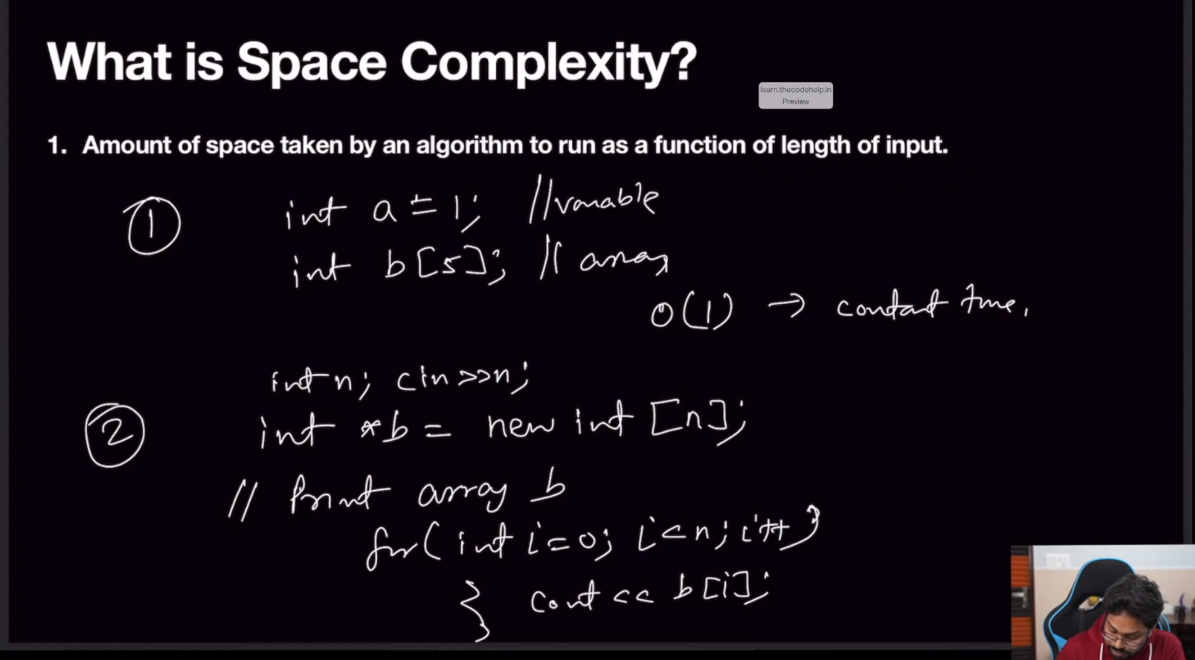 What is Space Complexity?
learn.thecodehelp.in
Preview
1. Amount of space taken by an algorithm to run as a function of length of input.
1 int a = 1; // variable
int b[5]; // array
O(1) → constant time.
int n; cin >> n;
2 int *b = new int [n];
// Print array b
for(int i=0; i<n; i++)
} cout << b[i];
}